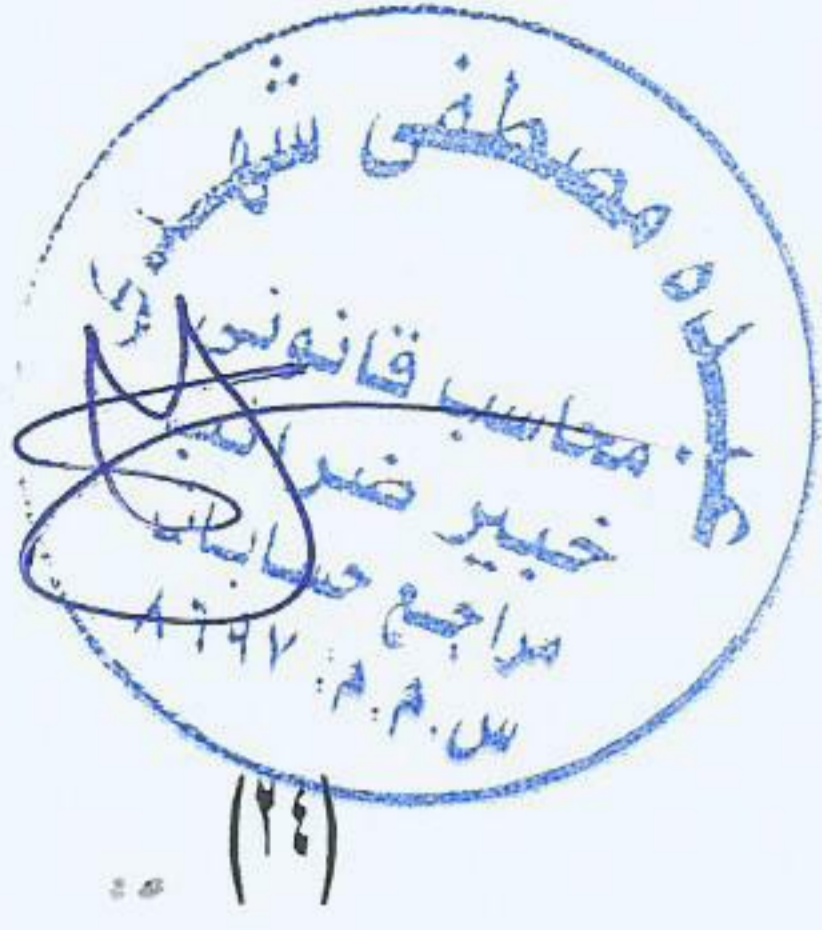 مصطفى
محاسب قانونى
خبير ضرائب
مراجع حسابات
س.م.م:
(٢٤)